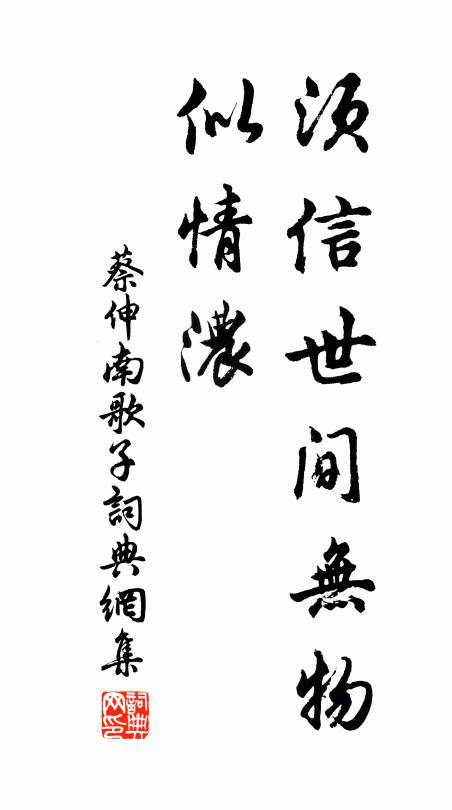 須信世間無物
似情濃
蔡伸南歌子詞典網集
詞典網印